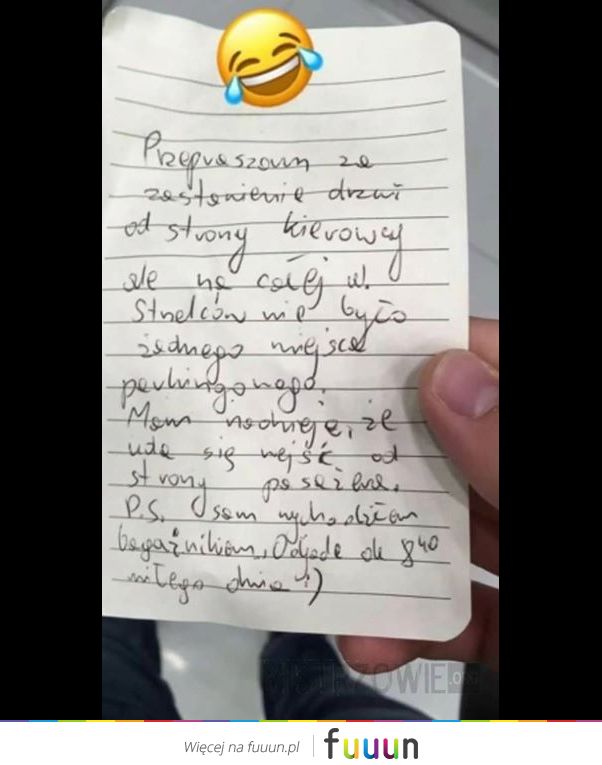 Przepraszam za
zasłonienie drzwi
od strony kierowcy
ale na całej ul.
Strzelców nie było
żadnego miejsca
parkingowego.
Mam nadzieję, że
uda się wejść od
strony pasażera.
P.S. Sam wychodziłem
bagażnikiem, Odjadę ok 8⁴⁰
miłego dnia :)
Więcej na fuuun.pl
fuuun